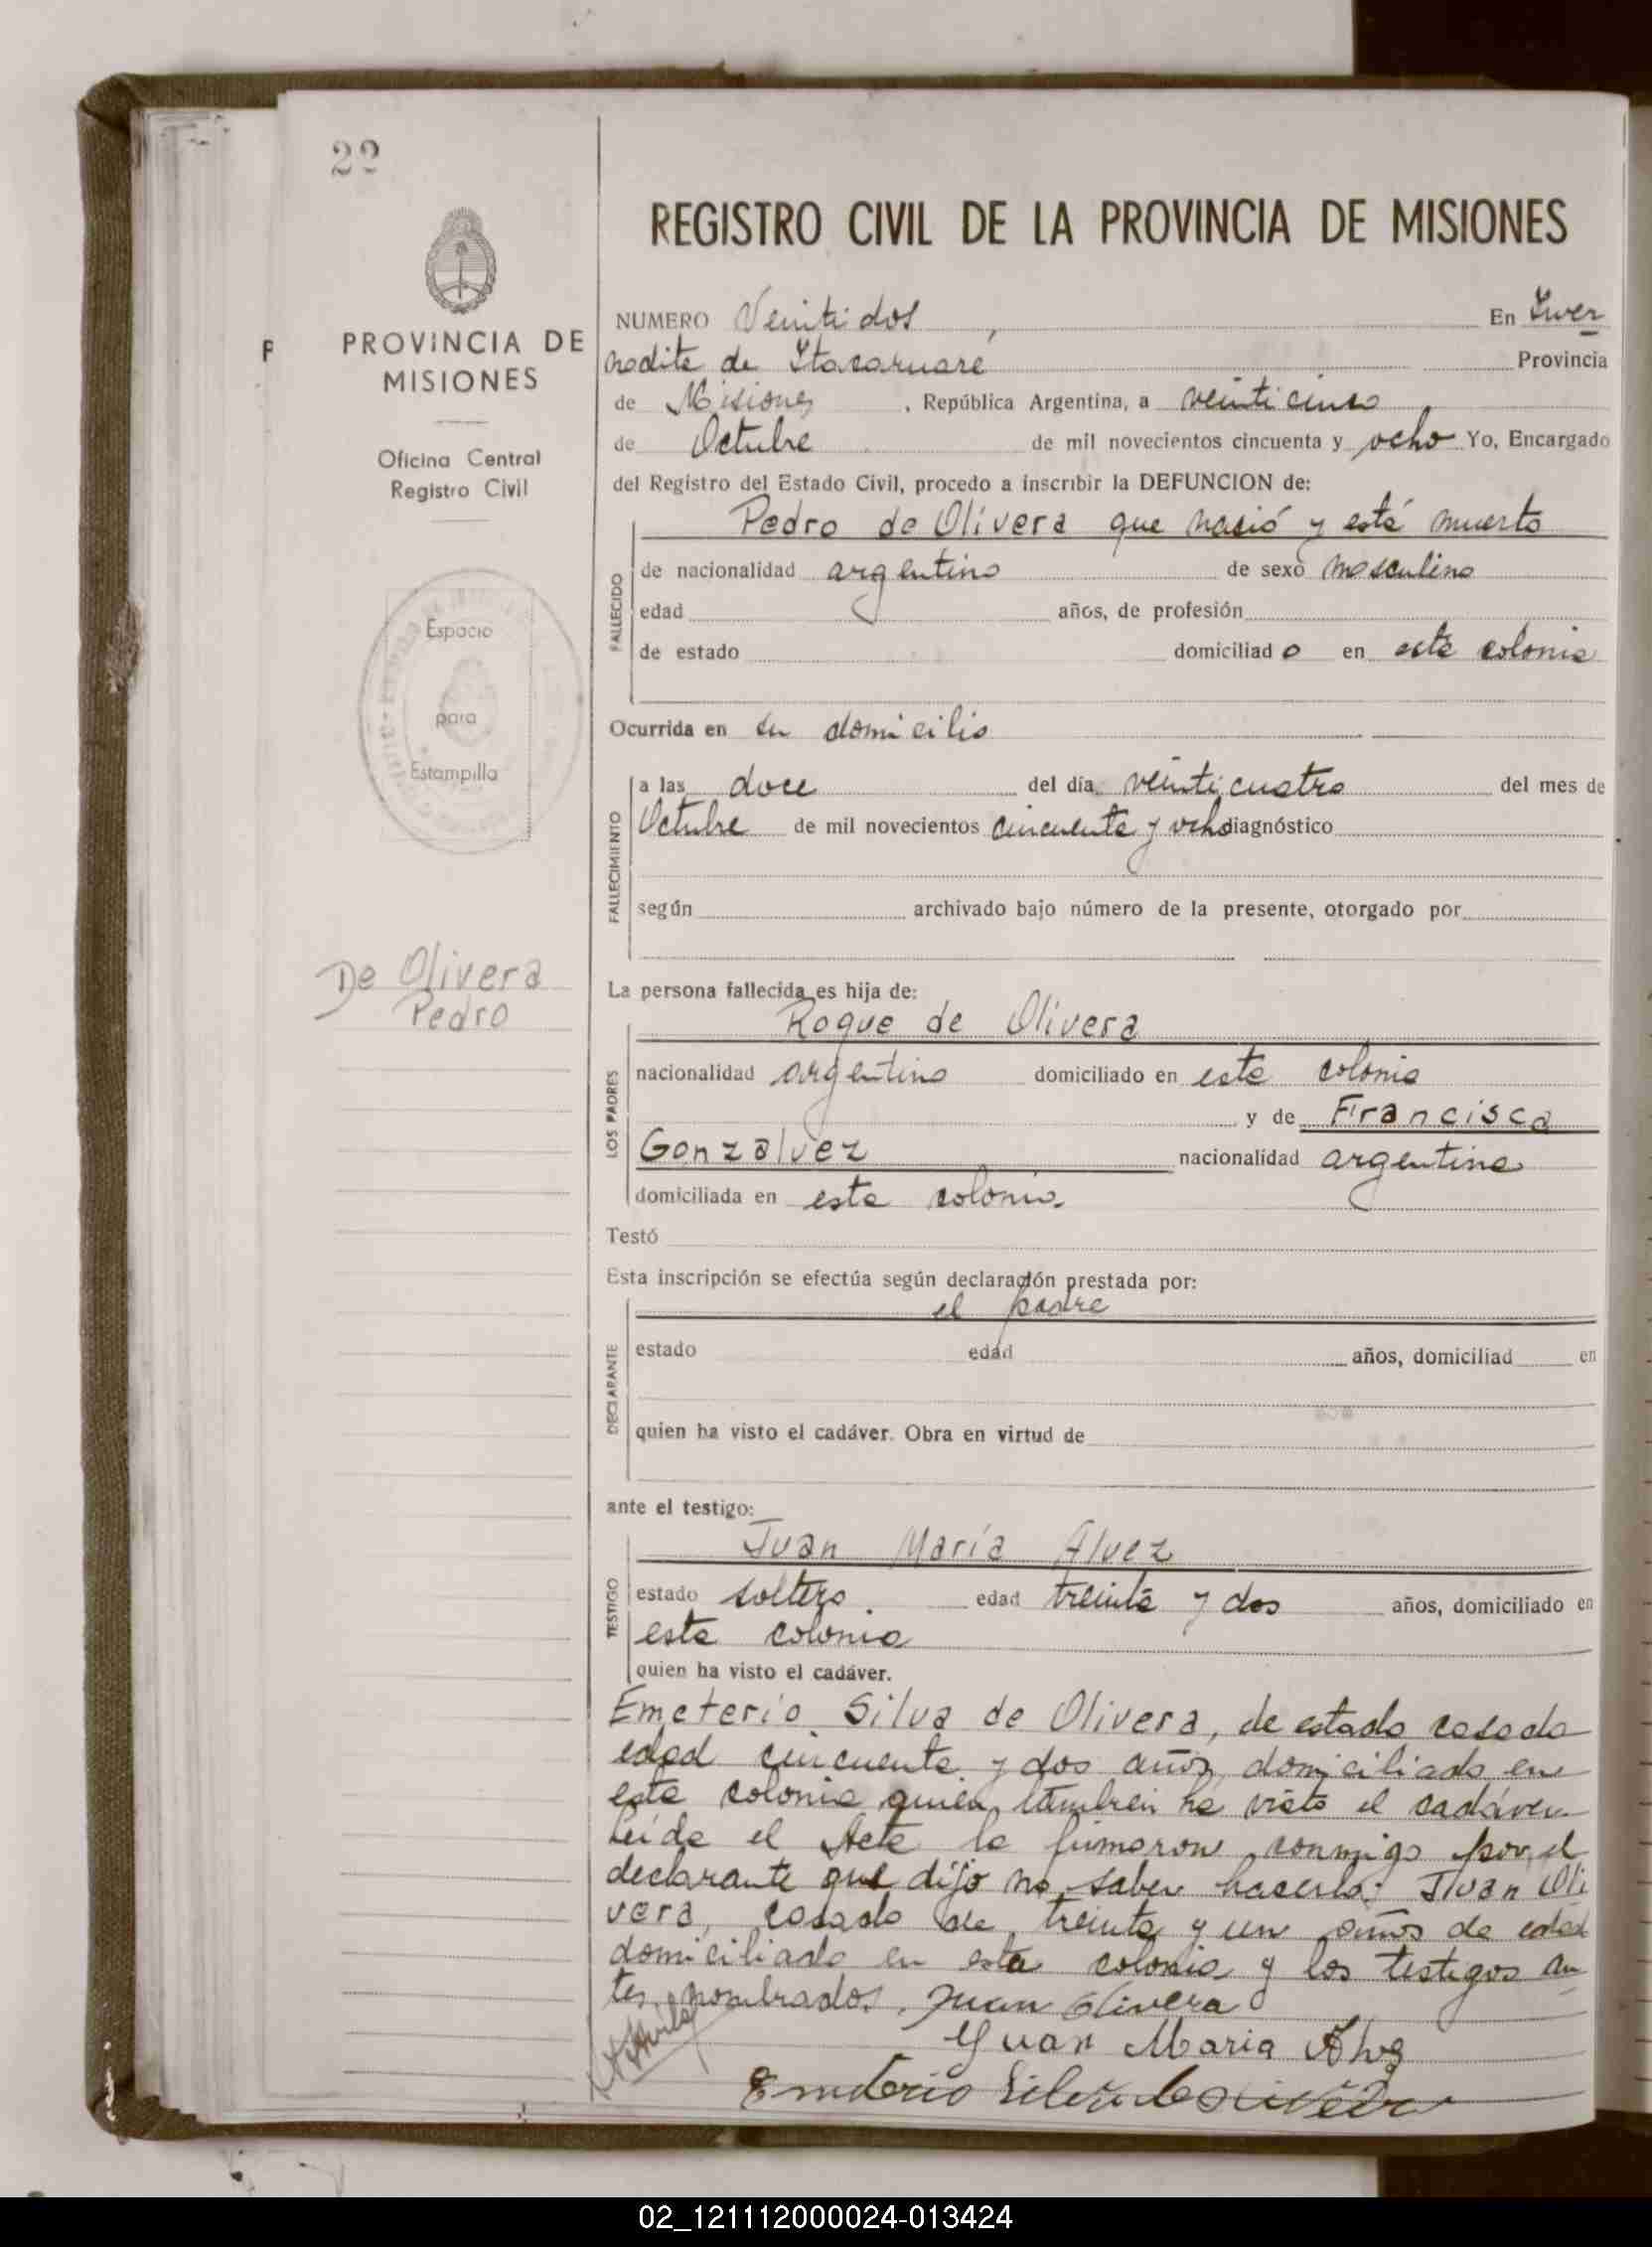 22
REGISTRO CIVIL DE LA PROVINCIA DE MISIONES
PROVINCIA DE
MISIONES
Oficina Central
Registro Civil
Espacio
para
Estampilla
De Olivera
Pedro
NUMERO Veinti dos En
de Itacaruaré Provincia
de Misiones, República Argentina, a veinti cinco
de Octubre de mil novecientos cincuenta y ocho Yo, Encargado
del Registro del Estado Civil, procedo a inscribir la DEFUNCION de:
Pedro de Olivera que nació y está muerto
FALLECIDO
de nacionalidad argentino de sexo masculino
edad años, de profesión
de estado domiciliad o en esta colonia
Ocurrida en su domicilio
FALLECIMIENTO
a las doce del día veinti cuatro del mes de
Octubre de mil novecientos cincuenta y ocho diagnóstico
según archivado bajo número de la presente, otorgado por
La persona fallecida es hija de:
Roque de Olivera
LOS PADRES
nacionalidad argentino domiciliado en esta colonia
y de Francisca
Gonzalvez nacionalidad argentina
domiciliada en esta colonia
Testó
Esta inscripción se efectúa según declaración prestada por:
el padre
DECLARANTE
estado edad años, domiciliad en
quien ha visto el cadáver. Obra en virtud de
ante el testigo:
Juan María Alvez
TESTIGO
estado soltero. edad treinta y dos años, domiciliado en
esta colonia
quien ha visto el cadáver.
Emeterio Silva de Olivera, de estado casado
edad cincuenta y dos años, domiciliado en
esta colonia quien tambien ha visto el cadáver
Leída el Acta la firmaron conmigo por el
declarante que dijo no saber hacerlo: Juan Oli
vera, casado de treinta y un años de edad
domiciliado en esta colonia y los testigos an
tes nombrados. Juan Olivera
Juan Maria
02_121112000024-013424